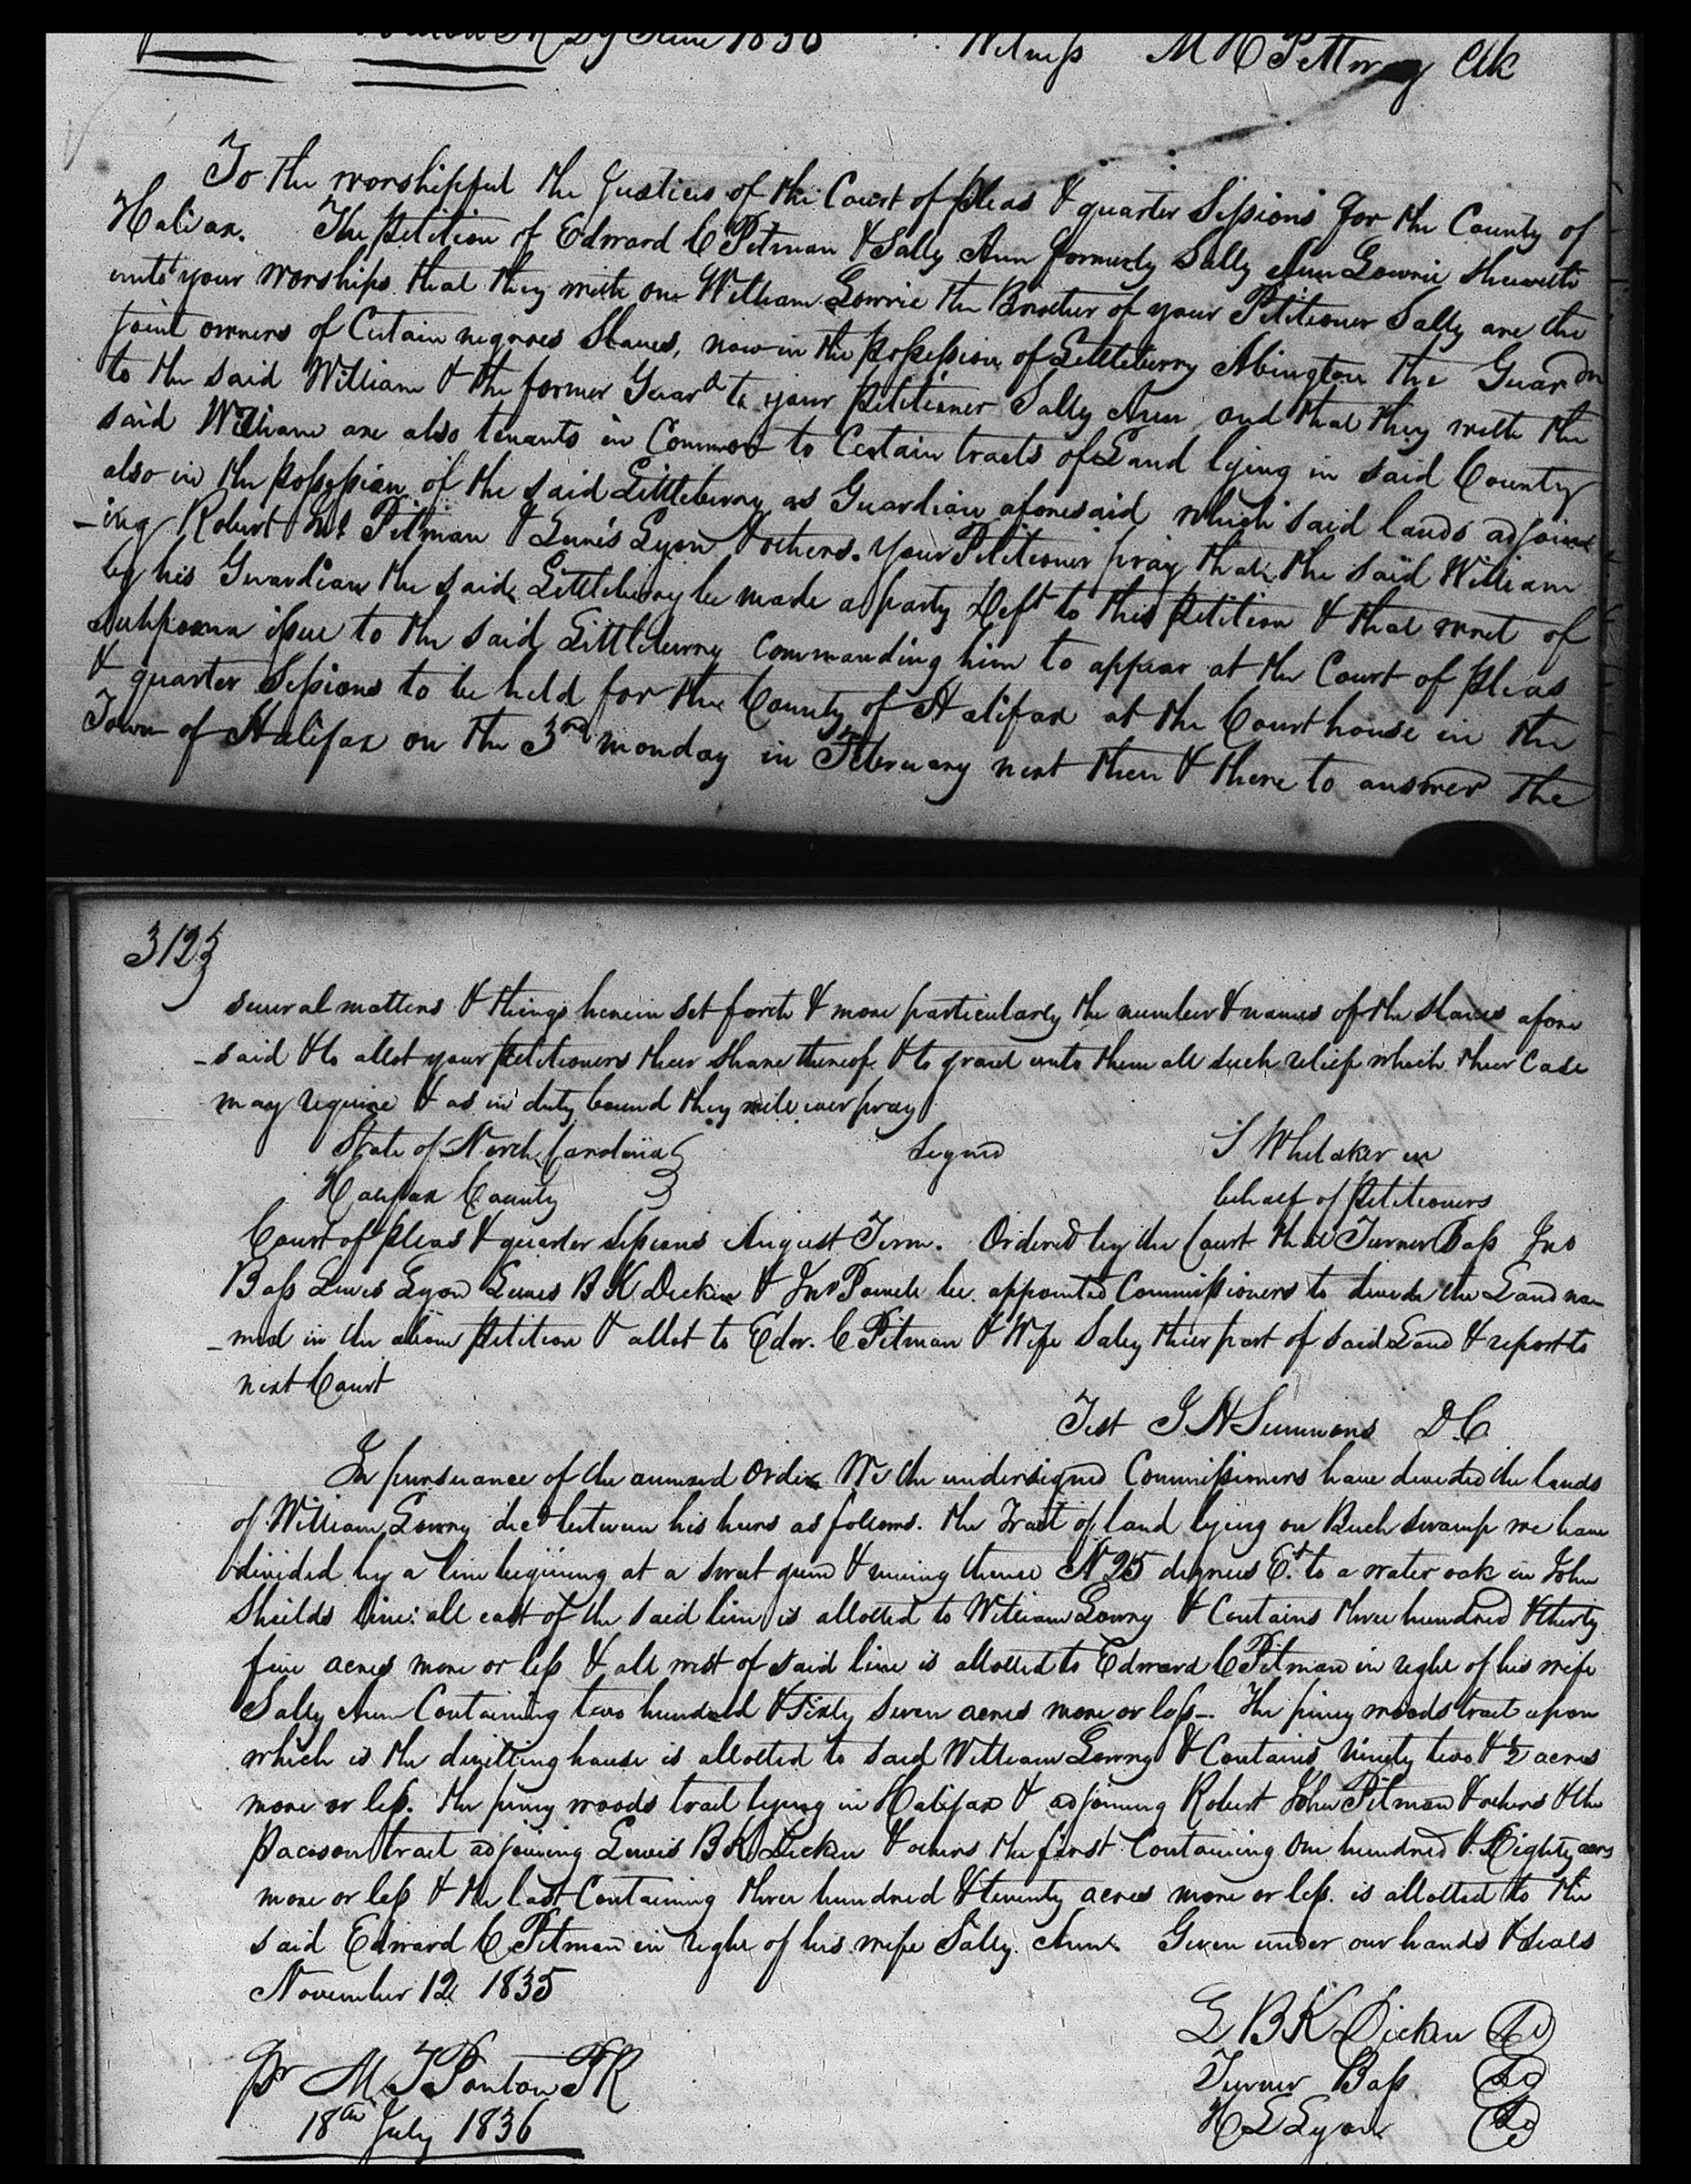 29 June 1836 Witness M H Pettway Clk
To the worshipful the Justices of the Court of pleas & quarter Sessions for the County of
Halifax. The petition of Edward C Pitman & Sally Ann formerly Sally Ann Lowrie sheweth
unto your worships that they with one William Lowrie the Brother of your Petitioner Sally are the
joint owners of Certain negroes Slaves, now in the possession of Littleberry Abington the Guardn
to the said William & the former Guard to your petitioner Sally Ann and that they with the
said William are also tenants in Common to Certain tracts of Land lying in said County
also in the possession of the said Littleberry as Guardian aforesaid which said lands adjoin
-ing Robert Pitman & Lewis Lyon & others. Your Petitioner pray that the said William
by his Guardian the said Littleberry be made a party Deft to this petition & that writ of
subpoena issue to the said Littleberry Commanding him to appear at the Court of pleas
& quarter Sessions to be held for the County of Halifax at the Courthouse in the
Town of Halifax on the 3rd monday in February next then & there to answer the
3123
several matters & things herein set forth & more particularly the number & names of the slaves afore
-said & to allot your petitioners their share thereof & to grant unto them all such relief which their Case
may require & as in duty bound they will ever pray
State of North Carolina Signed S Whitaker in
Halifax County behalf of petitioners
Court of pleas & quarter sessions August Term. Ordered by the Court that Turner Bass Jno
Bass Lewis Lyon Lewis B K Dicken & Jno Powell be appointed Commissioners to divide the Land na
-med in the above petition & allot to Edw. C Pitman & Wife Sally their part of said Land & report to
next Court
Test J H Simmons D.C.
In pursuance of the annexed Order We the undersigned Commissioners have divided the lands
of William Lowry decd between his heirs as follows. the Tract of land lying on Buch swamp we have
divided by a line begining at a sweet gum & runing thence N 25 degrees Et. to a water oak in John
Shields line: all east of the said line is allotted to William Lowry & Contains three hundred & thirty
five acres more or less & all west of said line is allotted to Edward C Pitman in right of his wife
Sally Ann Containing two hundred & sixty seven acres more or less -. The piney woods tract upon
which is the dwelling house is allotted to said William Lowry & Contains Ninety two & ½ acres
more or less. the piney woods tract lying in Halifax & adjoining Robert John Pitman & others & the
tract adjoining Lewis B K Dicken & others the first Containing One hundred & Eighty acres
more or less & the last Containing three hundred & twenty acres more or less. is allotted to the
said Edward C Pitman in right of his wife Sally Ann. Given under our hands & seals
November 12 1835
L B K Dicken
Pr M T Ponton PR Turner Bass
18th July 1836 H L Lyon